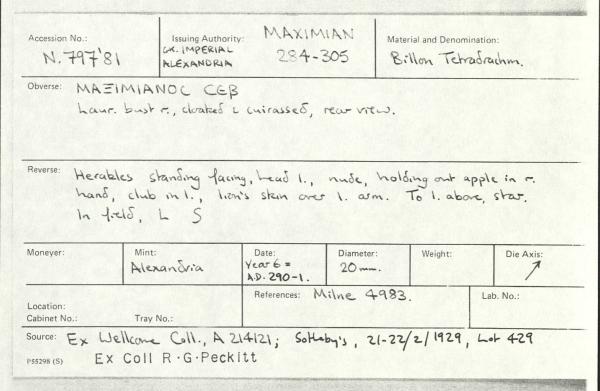 Accession No.: N. 797'81
Issuing Authority: GK. IMPERIAL ALEXANDRIA
MAXIMIAN
284-305
Material and Denomination:
Billon Tetradrachm.
Obverse: MAΞIMIANOC CEB
Laur. bust r., cloaked & cuirassed, rear view.
Reverse: Herakles standing facing, head l., nude, holding out apple in r.
hand, club in l., lion's skin over l. arm. To l. above, star.
In field, L S
Moneyer:
Mint:
Alexandria
Date:
Year 6 =
A.D. 290-1.
Diameter:
20 mm.
Weight:
Die Axis:
↗
Location:
Cabinet No.: Tray No.:
References: Milne 4983.
Lab. No.:
Source: Ex Wellcome Coll., A 214121; Sotheby's, 21-22/2/1929, Lot 429
P55298 (S) Ex Coll R.G.Peckitt